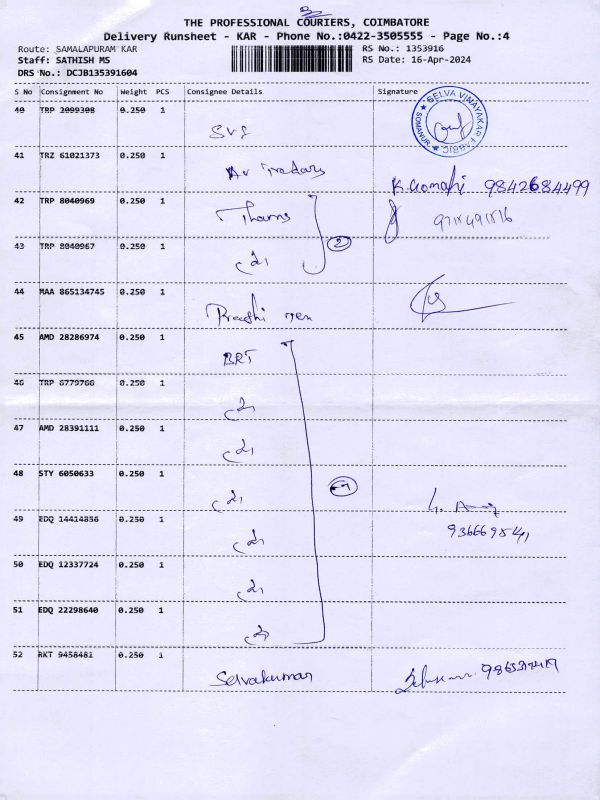 THE PROFESSIONAL COURIERS, COIMBATORE
Delivery Runsheet - KAR - Phone No.:0422-3505555 - Page No.:4
Route: SAMALAPURAM KAR
RS No.: 1353916
Staff: SATHISH MS
RS Date: 16-Apr-2024
DRS No.: DCJB135391604
S No Consignment No Weight PCS Consignee Details Signature
40 TRP 2099308 0.250 1 SVF
SELVA VINAYAKA FABRIC
SOMANUR
41 TRZ 61021373 0.250 1 AV Traders
K.Gomathi 9842684499
42 TRP 8040969 0.250 1 Tharns
43 TRP 8040967 0.250 1
2
44 MAA 865134745 0.250 1
45 AMD 28286974 0.250 1 BRT
46 TRP 6779766 0.250 1
47 AMD 28391111 0.250 1
48 STY 6050633 0.250 1
49 EDQ 14414856 0.250 1
50 EDQ 12337724 0.250 1
51 EDQ 22298640 0.250 1
52 RKT 9458481 0.250 1 Selvakumar